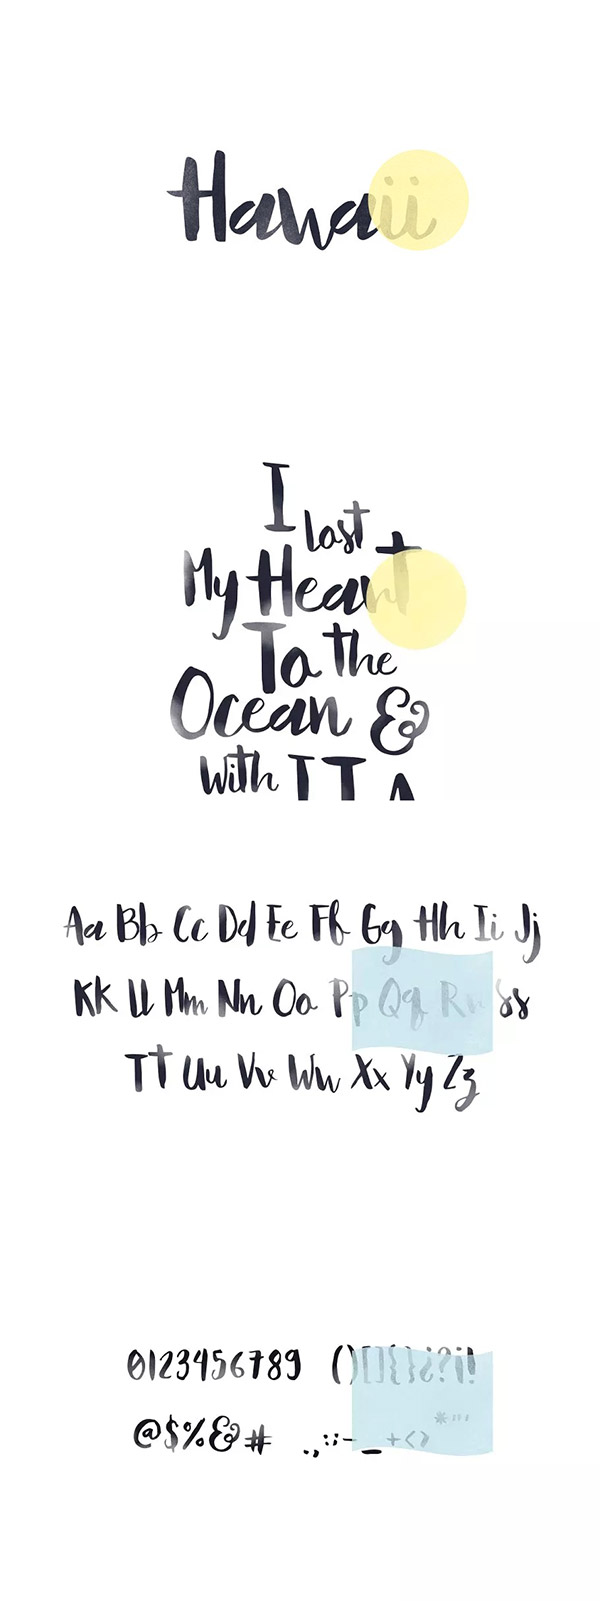 Hawaii
I
Lost
My Heart
To the
Ocean &
With
Aa Bb Cc Dd Ee Ff Gg Hh Ii Jj
Kk Ll Mm Nn Oo Pp Qq Rr Ss
Tt Uu Vv Ww Xx Yy Zz
0123456789 ()[]{}¿?¡!
@$%&# .,:;-_+<>*'"